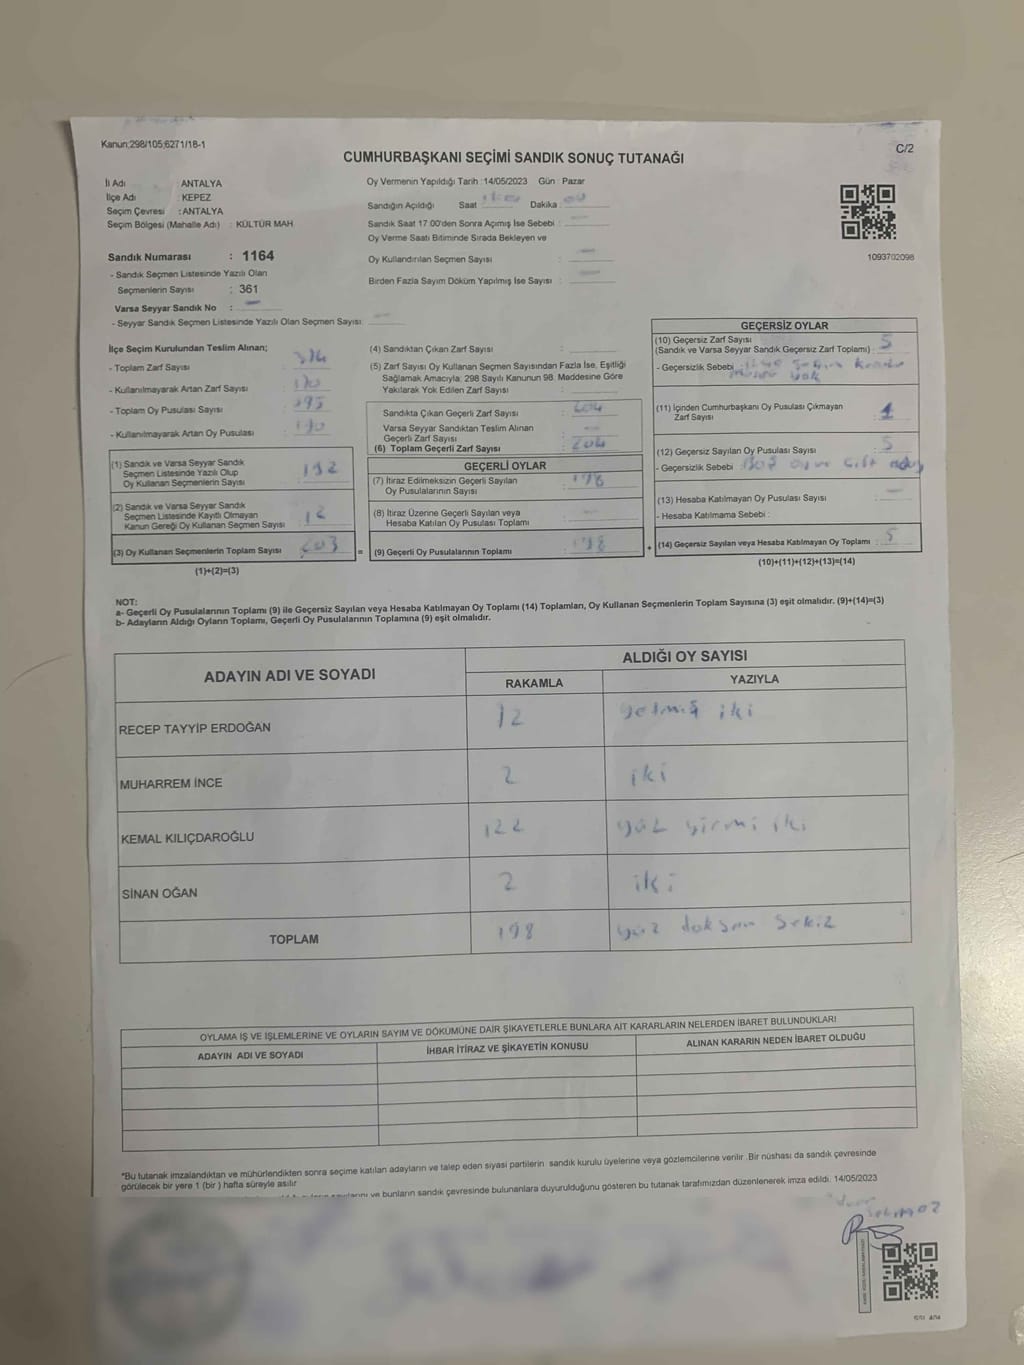 Kanun;298/105;6271/18-1
C/2
CUMHURBAŞKANI SEÇİMİ SANDIK SONUÇ TUTANAĞI
İl Adı : ANTALYA
İlçe Adı : KEPEZ
Seçim Çevresi : ANTALYA
Seçim Bölgesi (Mahalle Adı) : KÜLTÜR MAH
Oy Vermenin Yapıldığı Tarih :14/05/2023 Gün : Pazar
Sandığın Açıldığı Saat Dakika
Sandık Saat 17:00'den Sonra Açımış İse Sebebi :
Oy Verme Saati Bitiminde Sırada Bekleyen ve
Oy Kullandırılan Seçmen Sayısı :
Birden Fazla Sayım Döküm Yapılmış İse Sayısı :
1093702098
Sandık Numarası : 1164
- Sandık Seçmen Listesinde Yazılı Olan
Seçmenlerin Sayısı : 361
Varsa Seyyar Sandık No : -
- Seyyar Sandık Seçmen Listesinde Yazılı Olan Seçmen Sayısı:
İlçe Seçim Kurulundan Teslim Alınan;
- Toplam Zarf Sayısı :
- Kullanılmayarak Artan Zarf Sayısı :
- Toplam Oy Pusulası Sayısı : 395
- Kullanılmayarak Artan Oy Pusulası : 190
(1) Sandık ve Varsa Seyyar Sandık
Seçmen Listesinde Yazılı Olup
Oy Kullanan Seçmenlerin Sayısı : 192
(2) Sandık ve Varsa Seyyar Sandık
Seçmen Listesinde Kayıtlı Olmayan
Kanun Gereği Oy Kullanan Seçmen Sayısı : 12
(3) Oy Kullanan Seçmenlerin Toplam Sayısı : 203
(1)+(2)=(3)
(4) Sandıktan Çıkan Zarf Sayısı :
(5) Zarf Sayısı Oy Kullanan Seçmen Sayısından Fazla İse, Eşitliği
Sağlamak Amacıyla; 298 Sayılı Kanunun 98. Maddesine Göre
Yakılarak Yok Edilen Zarf Sayısı :
Sandıkta Çıkan Geçerli Zarf Sayısı : 204
Varsa Seyyar Sandıktan Teslim Alınan
Geçerli Zarf Sayısı : -
(6) Toplam Geçerli Zarf Sayısı : 204
=
GEÇERLİ OYLAR
(7) İtiraz Edilmeksizin Geçerli Sayılan
Oy Pusulalarının Sayısı : 198
(8) İtiraz Üzerine Geçerli Sayılan veya
Hesaba Katılan Oy Pusulası Toplamı : -
(9) Geçerli Oy Pusulalarının Toplamı : 198
+
GEÇERSİZ OYLAR
(10) Geçersiz Zarf Sayısı
(Sandık ve Varsa Seyyar Sandık Geçersiz Zarf Toplamı) : 5
- Geçersizlik Sebebi :
yok
(11) İçinden Cumhurbaşkanı Oy Pusulası Çıkmayan
Zarf Sayısı : 1
(12) Geçersiz Sayılan Oy Pusulası Sayısı : 5
- Geçersizlik Sebebi : Boş oy ve çift
(13) Hesaba Katılmayan Oy Pusulası Sayısı : -
- Hesaba Katılmama Sebebi :
(14) Geçersiz Sayılan veya Hesaba Katılmayan Oy Toplamı : 5
(10)+(11)+(12)+(13)=(14)
NOT:
a- Geçerli Oy Pusulalarının Toplamı (9) ile Geçersiz Sayılan veya Hesaba Katılmayan Oy Toplamı (14) Toplamları, Oy Kullanan Seçmenlerin Toplam Sayısına (3) eşit olmalıdır. (9)+(14)=(3)
b- Adayların Aldığı Oyların Toplamı, Geçerli Oy Pusulalarının Toplamına (9) eşit olmalıdır.
ADAYIN ADI VE SOYADI
ALDIĞI OY SAYISI
RAKAMLA YAZIYLA
RECEP TAYYİP ERDOĞAN 72 yetmiş iki
MUHARREM İNCE 2 iki
KEMAL KILIÇDAROĞLU 122 yüz yirmi iki
SİNAN OĞAN 2 iki
TOPLAM 198 yüz doksan sekiz
OYLAMA İŞ VE İŞLEMLERİNE VE OYLARIN SAYIM VE DÖKÜMÜNE DAİR ŞİKAYETLERLE BUNLARA AİT KARARLARIN NELERDEN İBARET BULUNDUKLARI
ADAYIN ADI VE SOYADI İHBAR İTİRAZ VE ŞİKAYETİN KONUSU ALINAN KARARIN NEDEN İBARET OLDUĞU
*Bu tutanak imzalandıktan ve mühürlendikten sonra seçime katılan adayların ve talep eden siyasi partilerin sandık kurulu üyelerine veya gözlemcilerine verilir .Bir nüshası da sandık çevresinde
görülecek bir yere 1 (bir ) hafta süreyle asılır
ve bunların sandık çevresinde bulunanlara duyurulduğunu gösteren bu tutanak tarafımızdan düzenlenerek imza edildi. 14/05/2023